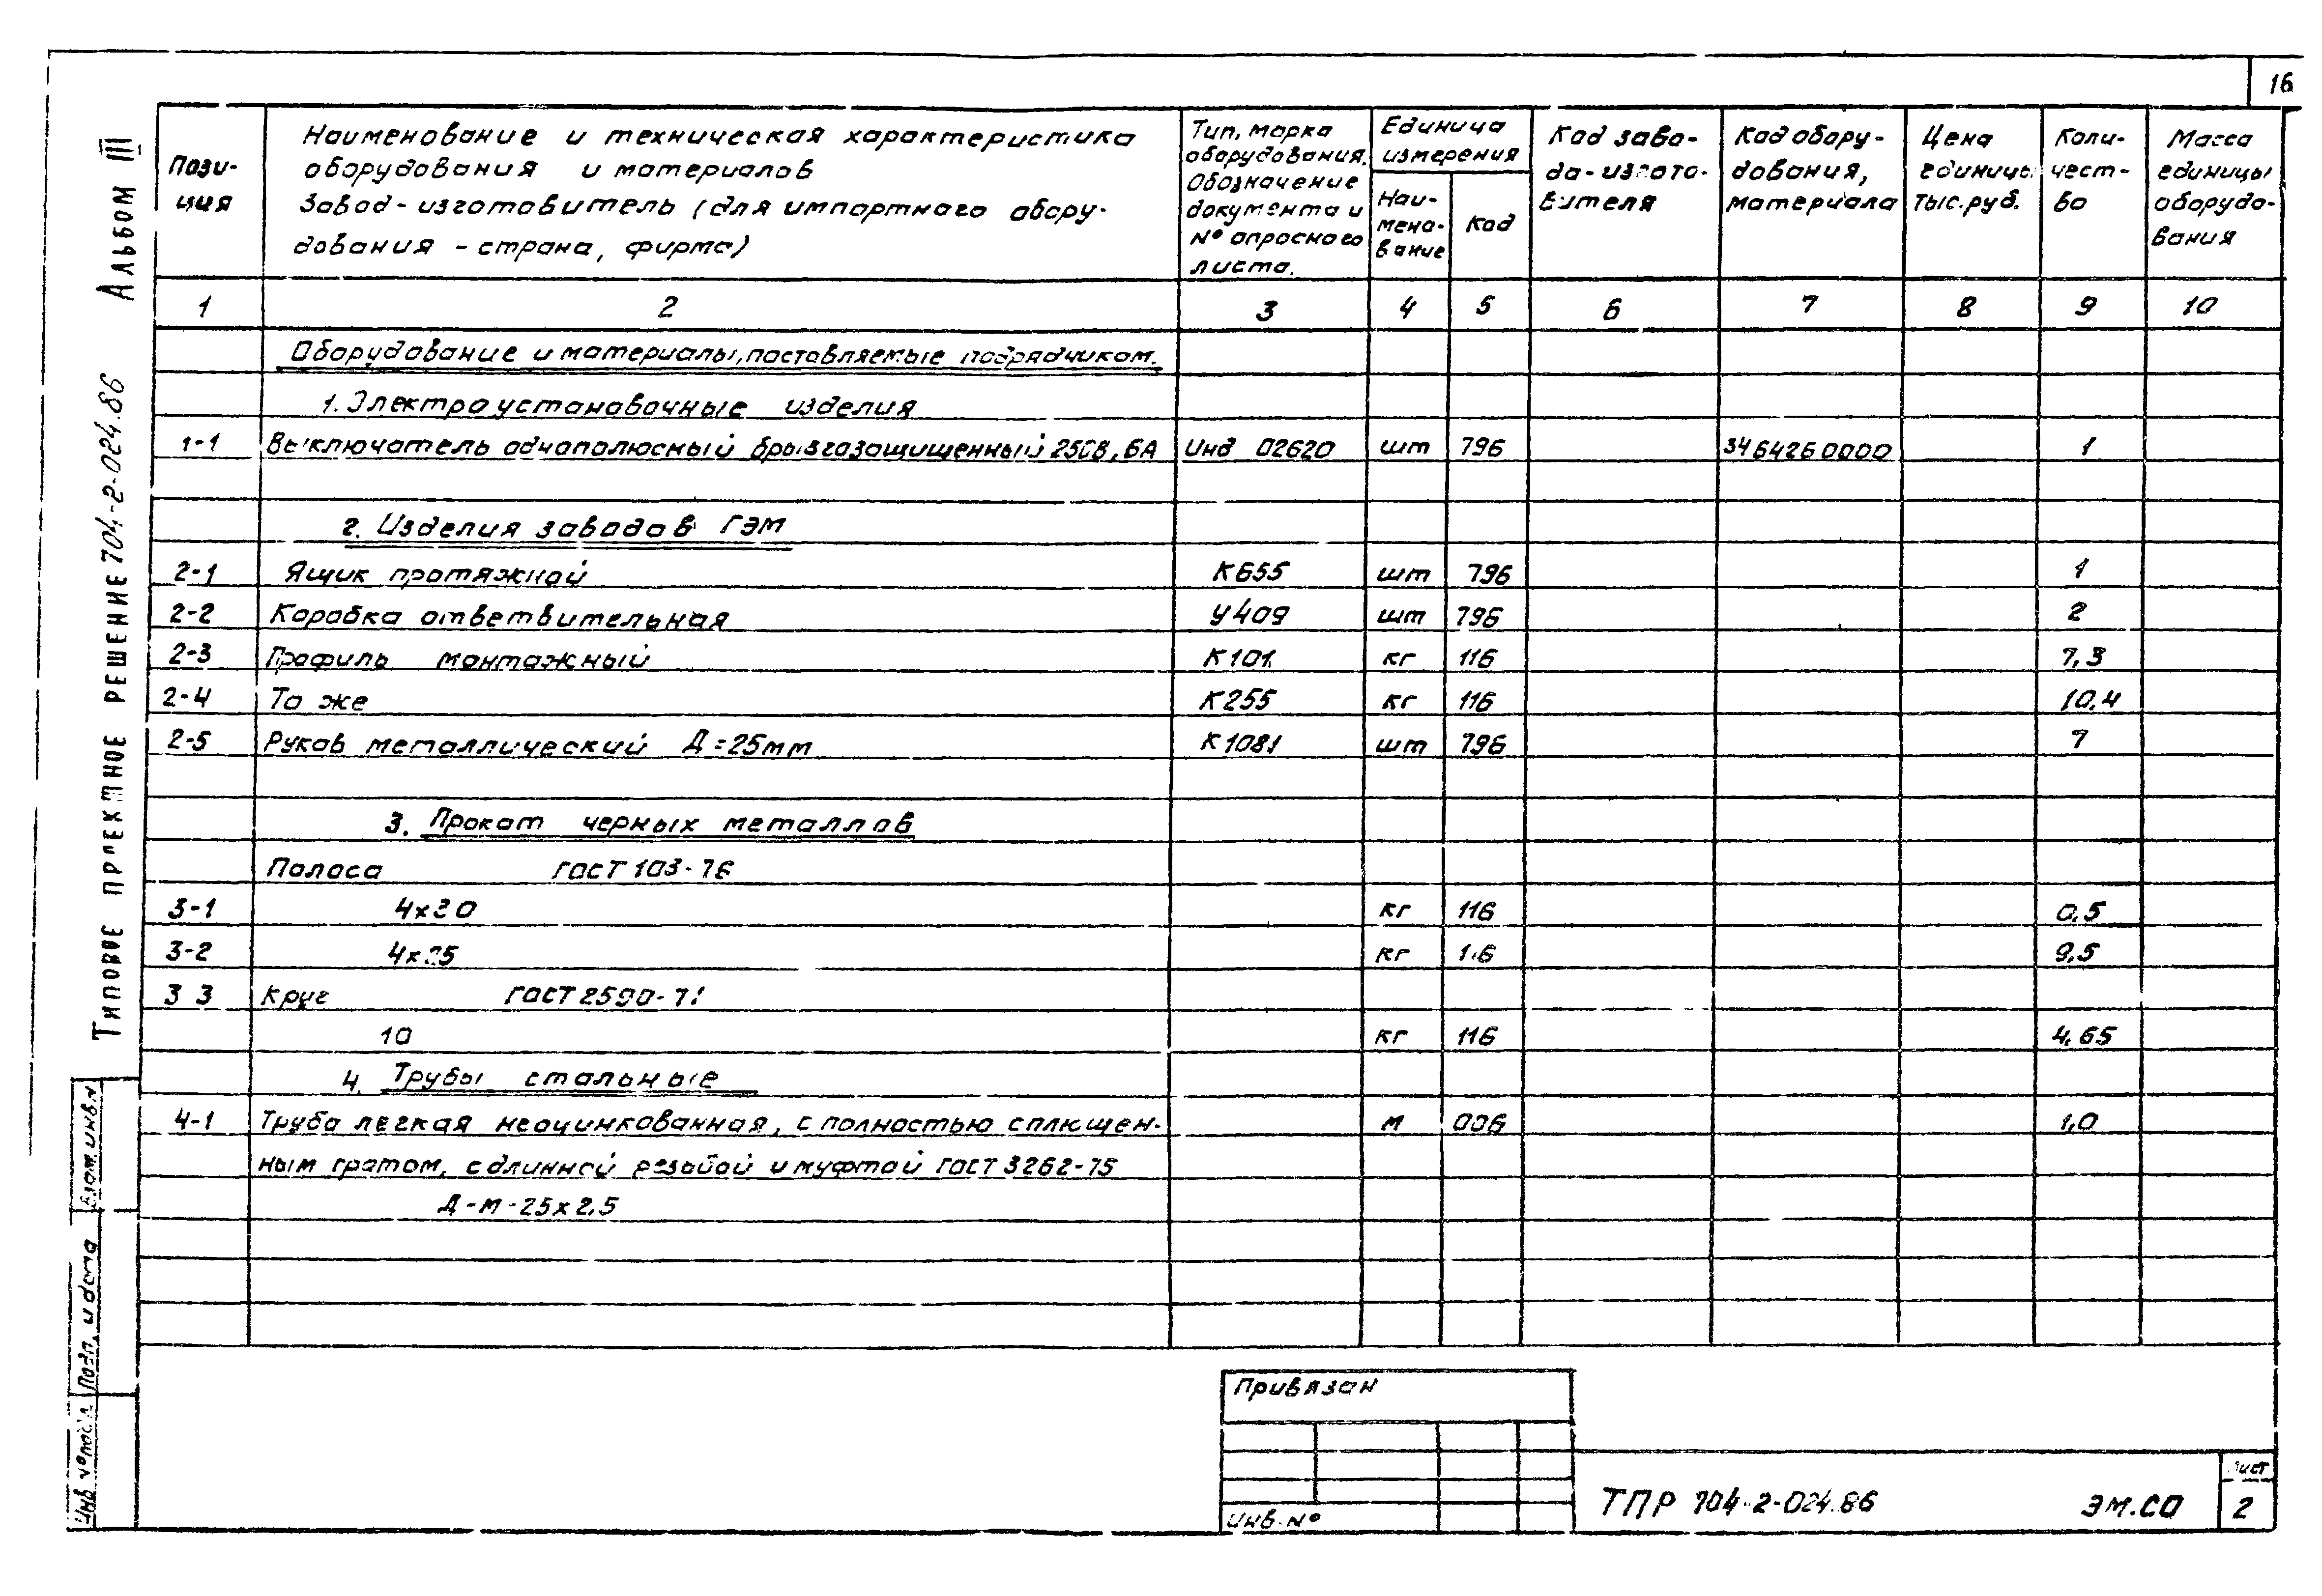 16
Альбом III
Типовое проектное решение 704-2-024.86
Пози-
ция
Наименование и техническая характеристика
оборудования и материалов
Завод-изготовитель (для импортного обору-
дования - страна, фирма)
Тип, марка
оборудования.
Обозначение
документа и
№ опросного
листа.
Единица
измерения
Наи-
мено-
вание
Код
Код заво-
да-изгото-
вителя
Код обору-
дования,
материала
Цена
единицы
тыс.руб.
Коли-
чест-
во
Масса
единицы
оборудо-
вания
1 2 3 4 5 6 7 8 9 10
Оборудование и материалы, поставляемые подрядчиком.
1. Электроустановочные изделия
1-1 Выключатель однополюсный брызгазащищенный 250В, 6А Инд 02620 шт 796 3464260000 1
2. Изделия заводов ГЭМ
2-1 Ящик протяжной К655 шт 796 1
2-2 Коробка ответвительная У409 шт 796 2
2-3 Профиль монтажный К101 кг 116 7,3
2-4 То же К255 кг 116 10,4
2-5 Рукав металлический Д=25мм К1081 шт 796 7
3. Прокат черных металлов
Полоса ГОСТ 103-76
3-1 4х30 кг 116 0,5
3-2 кг 116 9,5
3 3 Круг ГОСТ 2590-71
10 кг 116 4,65
4. Трубы стальные
4-1 Труба легкая неоцинкованная, с полностью сплющен- м 006 1,0
ным гратом, с длинной резьбой и муфтой ГОСТ 3262-75
Д-М-25х2,5
Взам. инв. №
Подп. и дата
Инв № подл.
Привязан
Инв. №
ТПР 704-2-024.86 ЭМ.СО
Лист
2